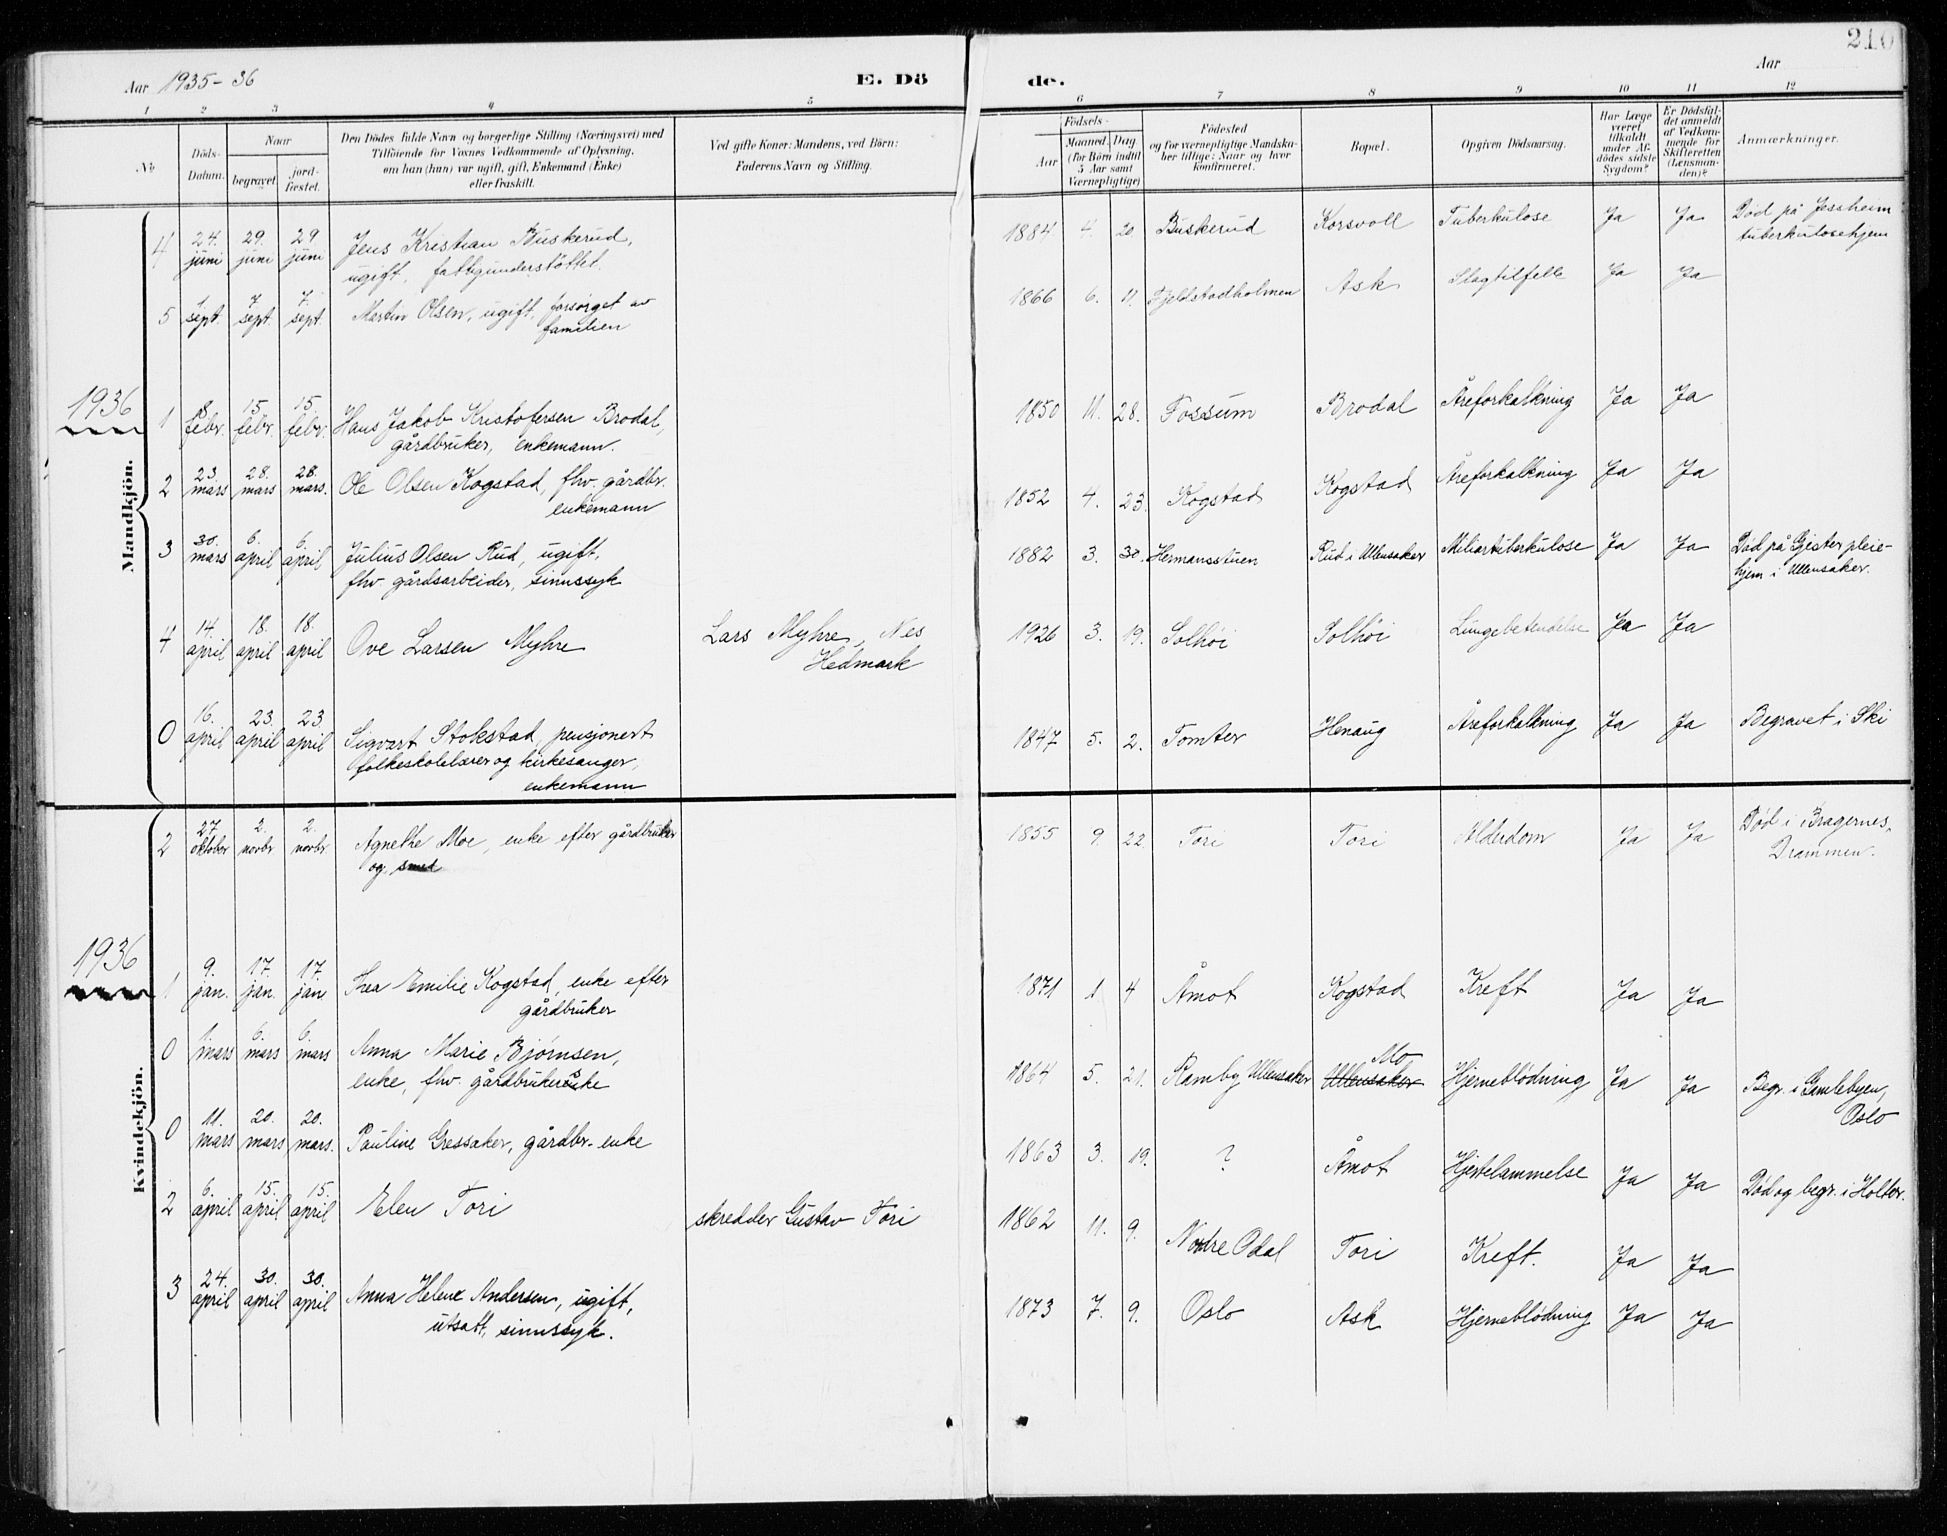 210
Aar 1935-36
E. Dö
de.
Aar
1 2 3 4 5 6 7 8 9 10 11 12
No
Döds-Datum.
Naar
begravet.
jordfæstet.
Den Dödes fulde Navn og borgerlige Stilling (Næringsvei) med
Tilföiende for Voxnes Vedkommende af Oplysning,
om han (hun) var ugift, gift, Enkemand (Enke)
eller fraskilt.
Ved gifte Koner: Mandens, ved Börn:
Faderens Navn og Stilling.
Födsels-
Aar
Maaned. Dag.
(for Börn indtil
5 Aar samt
Værnepligtige)
Födested
og for værnepligtige Mandska-
ber tillige: Naar og hvor
konfirmeret.
Bopæl.
Opgiven Dödsaarsag.
Har Læge
været
tilkaldt
under Af-
dödes sidste
Sygdom?
Er Dödsfal-
det anmeldt
af Vedkom-
mende for
Skifteretten
(Lænsman-
den)?
Anmærkninger.
Mandkjön.
4 24. juni 29. juni 29. juni Jens Kristian Buskerud, 1884 4. 20 Buskerud Korsvoll Tuberkulose Ja Ja Död på Jessheim
ugift, fattigunderstöttet. tuberkulosehjem
5 1 sept. 7 sept. 7. sept. Martin Olsen, ugift, forsörget av 1866 6. 11. Fjeldstadholmen Ask Slagtilfelle Ja Ja
familien
1936
1 8 febr. 15. febr. 15. febr. Hans Jakob Kristofersen Brodal, 1850 11. 28. Fossum Brodal Åreforkalkning Ja Ja
gårdbruker, enkemann.
2 23. mars 28. mars 28. mars. Ole Olsen Kogstad, fhv. gårdbr. 1852 4. 23. Kogstad Kogstad Åreforkalkning Ja Ja
enkemann
3 30. mars 6. april 6. april Julius Olsen Rud, ugift, 1882 3. 30. Hermansstuen Rud i Ullensaker Miliærtuberkulose Ja Ja Död på Gjister pleie-
fhv. gårdsarbeider, sinnssyk hjem i Ullensaker.
4 14. april 18. april 18. april Ove Larsen Myhre Lars Myhre, Nes 1926 3. 19. Solhöi Solhöi Lungebetendelse Ja Ja
Hedmark
0 16. april 23. april 23. april Sigvart Stokstad, pensjonert 1847 5. 2. Tomter Henaug Åreforkalkning Ja Ja Begravet i Ski
folkeskolelærer og kirkesanger,
enkemann
Kvindekjön.
2 27. oktober 2. novbr 2. novbr Agnethe Moe, enke efter gårdbruker 1855 9. 22. Tori Tori Alderdom Ja Ja Död i Bragernes,
og smed Drammen.
1936
1 9. jan. 17. jan. 17. jan Thea Emilie Kogstad, enke efter 1871 1 4 Åmot Kogstad Kreft Ja Ja
gårdbruker
0 1 mars 6. mars 6. mars Anna Marie Bjørnsen, 1864 5. 21. Ramby Ullensaker Ullensaker Mo Hjerneblödning Ja Ja Begr. i Gamlebyen,
enke, fhv. gårdbrukerenke Oslo
0 11. mars 20. mars 20. mars. Pauline Gressaker, gårdbr. enke 1863 3. 19. ? Åmot Hjertelammelse Ja Ja Död og begr. i Holter.
2 6. april 15. april 15. april Elen Tori skredder Gustav Tori 1862 11. 9. Nordre Odal Tori Kreft. Ja Ja
3 24. april 30. april 30. april Anna Helene Andersen, ugift, 1873 7. 9. Oslo Ask Hjerneblödning Ja Ja
utsatt, sinnssyk.